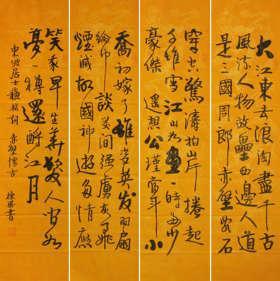 大江東去浪淘盡千古
風流人物故壘西邊人道
是三國周郎赤壁亂石
穿空驚濤拍岸捲起
千堆雪江山如畫一時多少
豪傑遙想公瑾當年小
喬初嫁了雄姿英發羽扇
綸巾談笑間強虜灰飛
煙滅故國神遊多情應
笑我早生華髮人間如
夢一樽還酹江月
東坡居士詞赤壁懷古
書